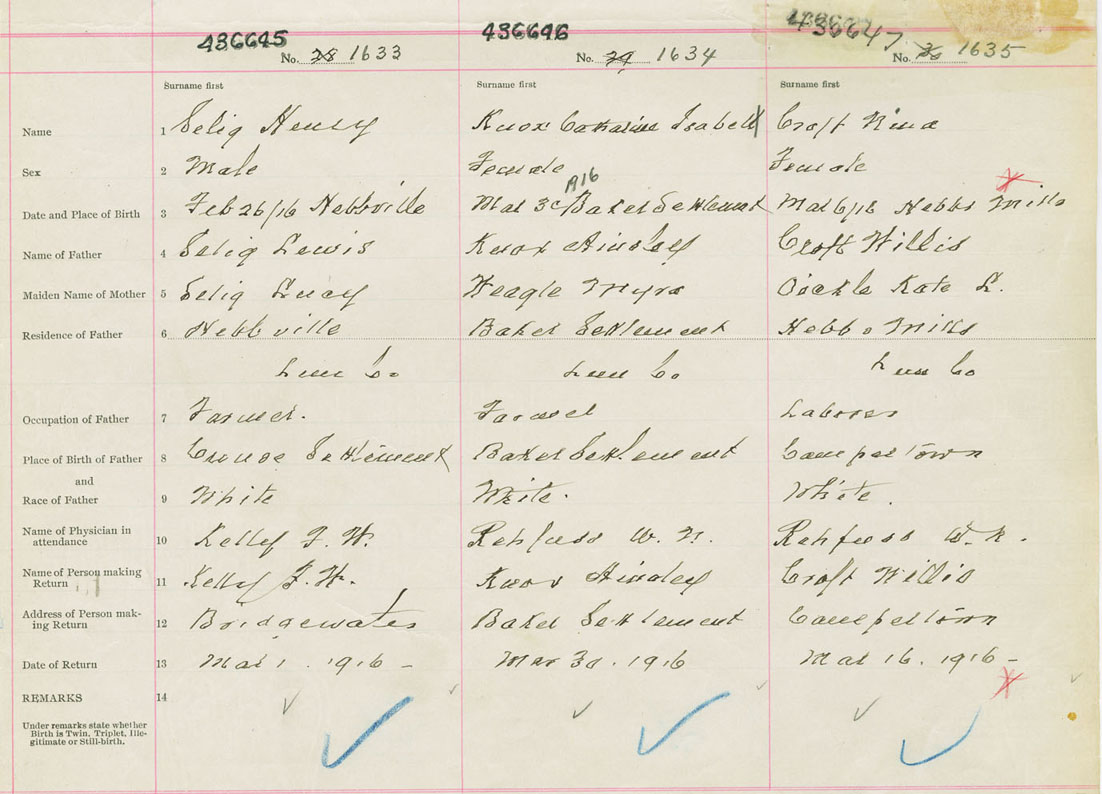 436645 436646 436647
No. 28 1633 No. 29 1634 No. 30 1635
Surname first Surname first Surname first
Name 1 Selig Henry Knox Catharine Isabell Croft Nina
Sex 2 Male Female Female
A16
Date and Place of Birth 3 Feb 26/16 Hebbville Mar 30 Baker Settlement Mar 6/16 Hebbs Mills
Name of Father 4 Selig Lewis Knox Ainsley Croft Willis
Maiden Name of Mother 5 Selig Lucy Weagle Myra Oickle Kate L.
Residence of Father 6 Hebbville Baker Settlement Hebbs Mills
Lun Co Lun Co Lun Co
Occupation of Father 7 Farmer. Farmer Laborer
Place of Birth of Father 8 Crouse Settlement Baker Settlement Camperdown
and
Race of Father 9 White White. White.
Name of Physician in
attendance 10 Kelley F. W. Rehfuss W. N. Rehfuss W. N.
Name of Person making
Return 11 Kelley F. W. Knox Ainsley Croft Willis
Address of Person mak-
ing Return 12 Bridgewater Baker Settlement Camperdown
Date of Return 13 Mar 1. 1916 - Mar 30. 1916 Mar 16. 1916 -
REMARKS 14
Under remarks state whether
Birth is Twin, Triplet, Ille-
gitimate or Still-birth.